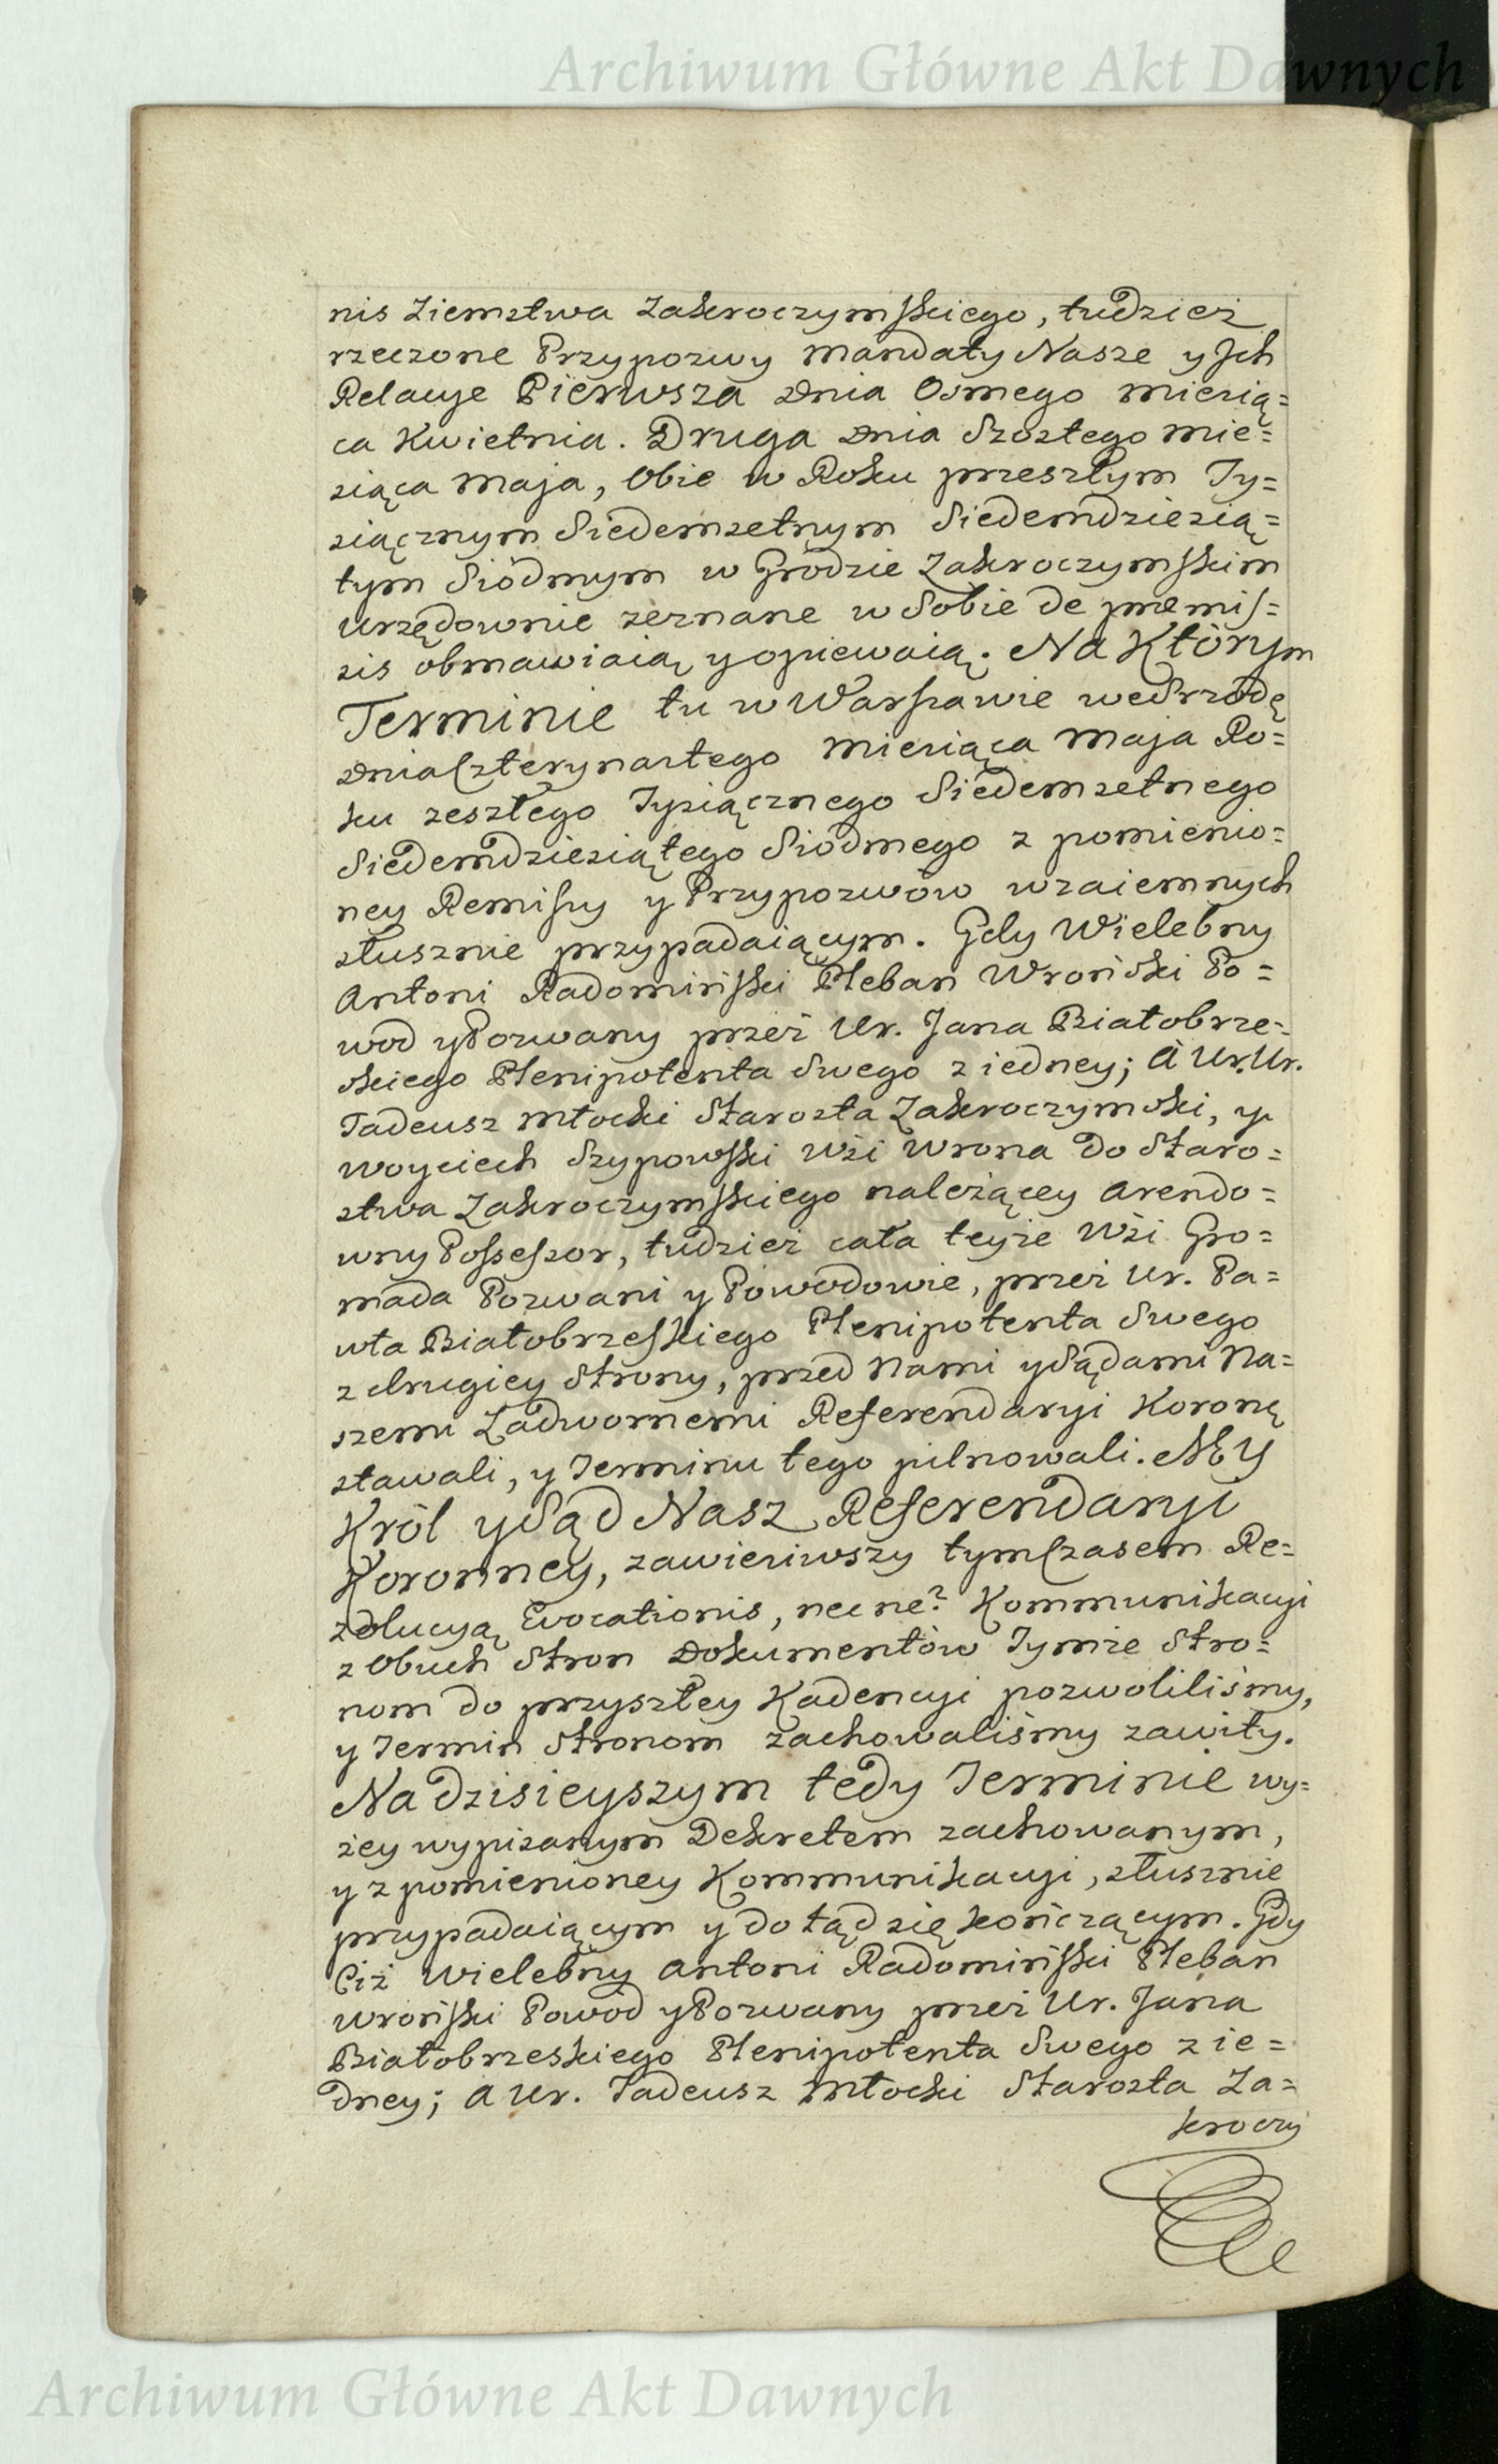 Archiwum Główne Akt Dawnych
nis Ziemstwa Zakroczymskiego, tudzież
rzeczone Przypozwy Mandaty Nasze y Jch
Relacye Pierwsza Dnia Osmego Miesią=
ca Kwietnia. Druga Dnia Szostego Mie=
siąca Maja, Obie w Roku przeszłym Ty=
siącznym Siedemsetnym Siedemdziesią=
tym Siódmym w Grodzie Zakroczymskim
urzędownie zeznane w Sobie de præmis=
sis obmawiaią y opiewaią. Na Którym
Terminie tu w Warszawie we Srzodę
Dnia Czterynastego Miesiąca Maja Ro=
ku zeszłego Tysiącznego Siedemsetnego
Siedemdziesiątego Siodmego z pomienio=
ney Remissy y Przypozwów wzaiemnych
słusznie przypadaiącym. Gdy Wielebny
Antoni Radomiński Pleban Wroński Po=
wod y Pozwany przez Ur. Jana Białobrze=
skiego Plenipotenta Swego z iedney; A Ur. Ur.
Tadeusz Młocki Starosta Zakroczymski, y
Woyciech Szypowski Wsi Wrona do Staro=
stwa Zakroczymskiego należącey Arendo=
wny Possessor, tudzież cała teyże Wsi Gro=
mada Pozwani y Powodowie, przez Ur. Pa=
wła Białobrzeskiego Plenipotenta Swego
z drugiey Strony, przed Nami y Sądami Na=
szemi Zadwornemi Referendaryi Koroną
stawali, y Terminu tego pilnowali. MY
Król y Sąd Nasz Referendaryi
Koronney, zawiesiwszy tymczasem Re=
zolucyą Evocationis, necne? Kommunikacyi
z Obuch Stron Dokumentów Tymże Stro=
nom do przyszłey Kadencyi pozwoliliśmy,
y Termin Stronom zachowaliśmy zawity.
Na dzisieyszym tedy Terminie wy=
żey wypisanym Dekretem zachowanym,
y z pomienioney Kommunikacyi, słusznie
przypadaiącym y dotąd się kończącym. Gdy
Ciż Wielebny Antoni Radomiński Pleban
Wroński Powod y Pozwany przez Ur. Jana
Białobrzeskiego Plenipotenta Swego z ie=
dney; A Ur. Tadeusz Młocki Starosta Za=
kroczy
Archiwum Główne Akt Dawnych